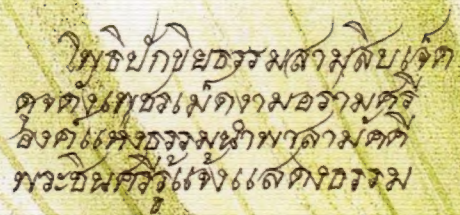 โพธิปักขิยธรรมสามสิบเจ็ด
ดุจดั่งเพชรเม็ดงามอร่ามศรี
องค์แห่งธรรมนำพาสามัคคี
พระชินศรีรู้แจ้งแสดงธรรม